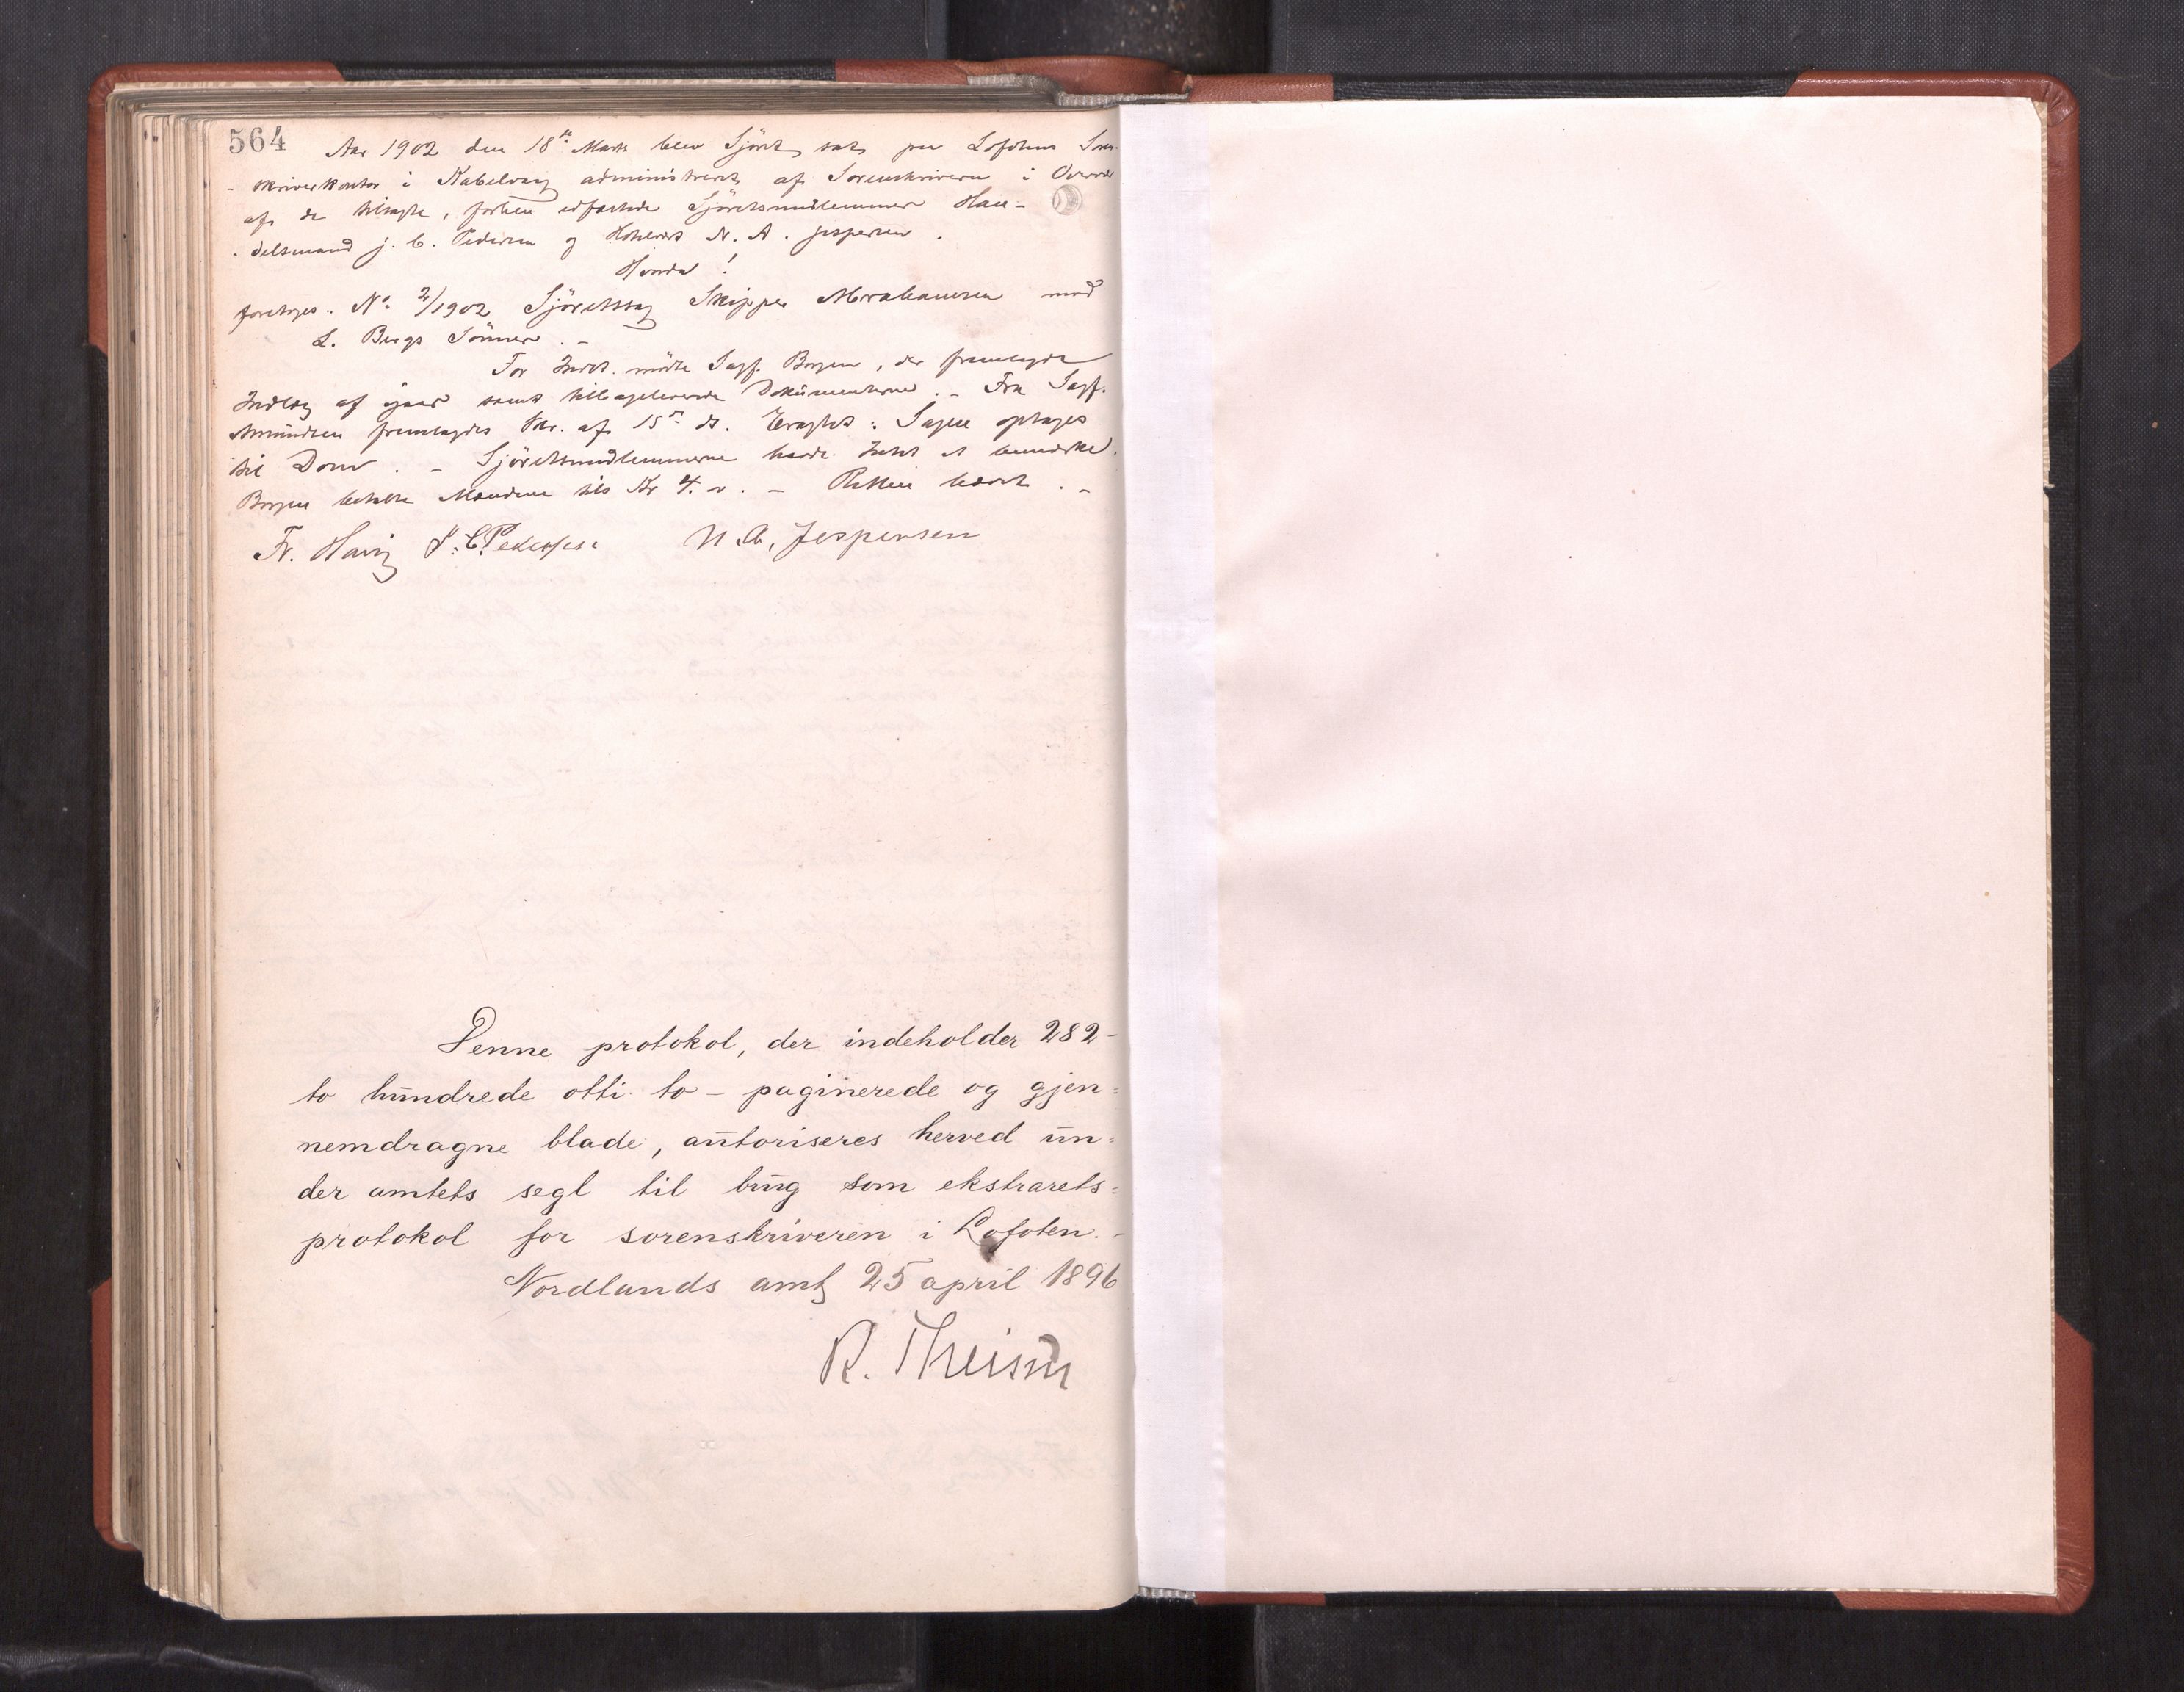 564
Aar 1902 den 18de Marts blev Sjöret sat paa Lofotens Soren-
- skriverkontor i Kabelvaag administreret af Sorenskriveren i Overvær
af de tilsagte, forhen edfæstede Sjöretsmedlemmer Han-
- delsmand J. C. Pedersen og Hotelvært N. A. Jespersen.
Hvorda!
foretoges: No 2/1902 Sjöretssag Skipper Abrahamsen mod
L. Bergs Sönner. -
For Indst. mödte Sagf. Borgen, der fremlagde
Indlæg af igaar samt tilbageleverede Dokumenterne. - Fra Sagf.
Amundsen fremlagdes Skr. af 15de ds. Eragtet: Sagen optages
til Dom. - Sjöretsmedlemmerne havde Intet at bemærke.
Borgen betalte Mændene tils Kr 4. - Retten hævet. -
Fr. Havig J. C. Pedersen N. A. Jespersen
Denne protokol, der indeholder 282 -
to hundrede otti to - paginerede og gjen=
nemdragne blade, autoriseres herved un=
der amtets segl til brug som ekstrarets=
protokol for sorenskriveren i Lofoten. -
Nordlands amt 25 april 1896
R. Theisen